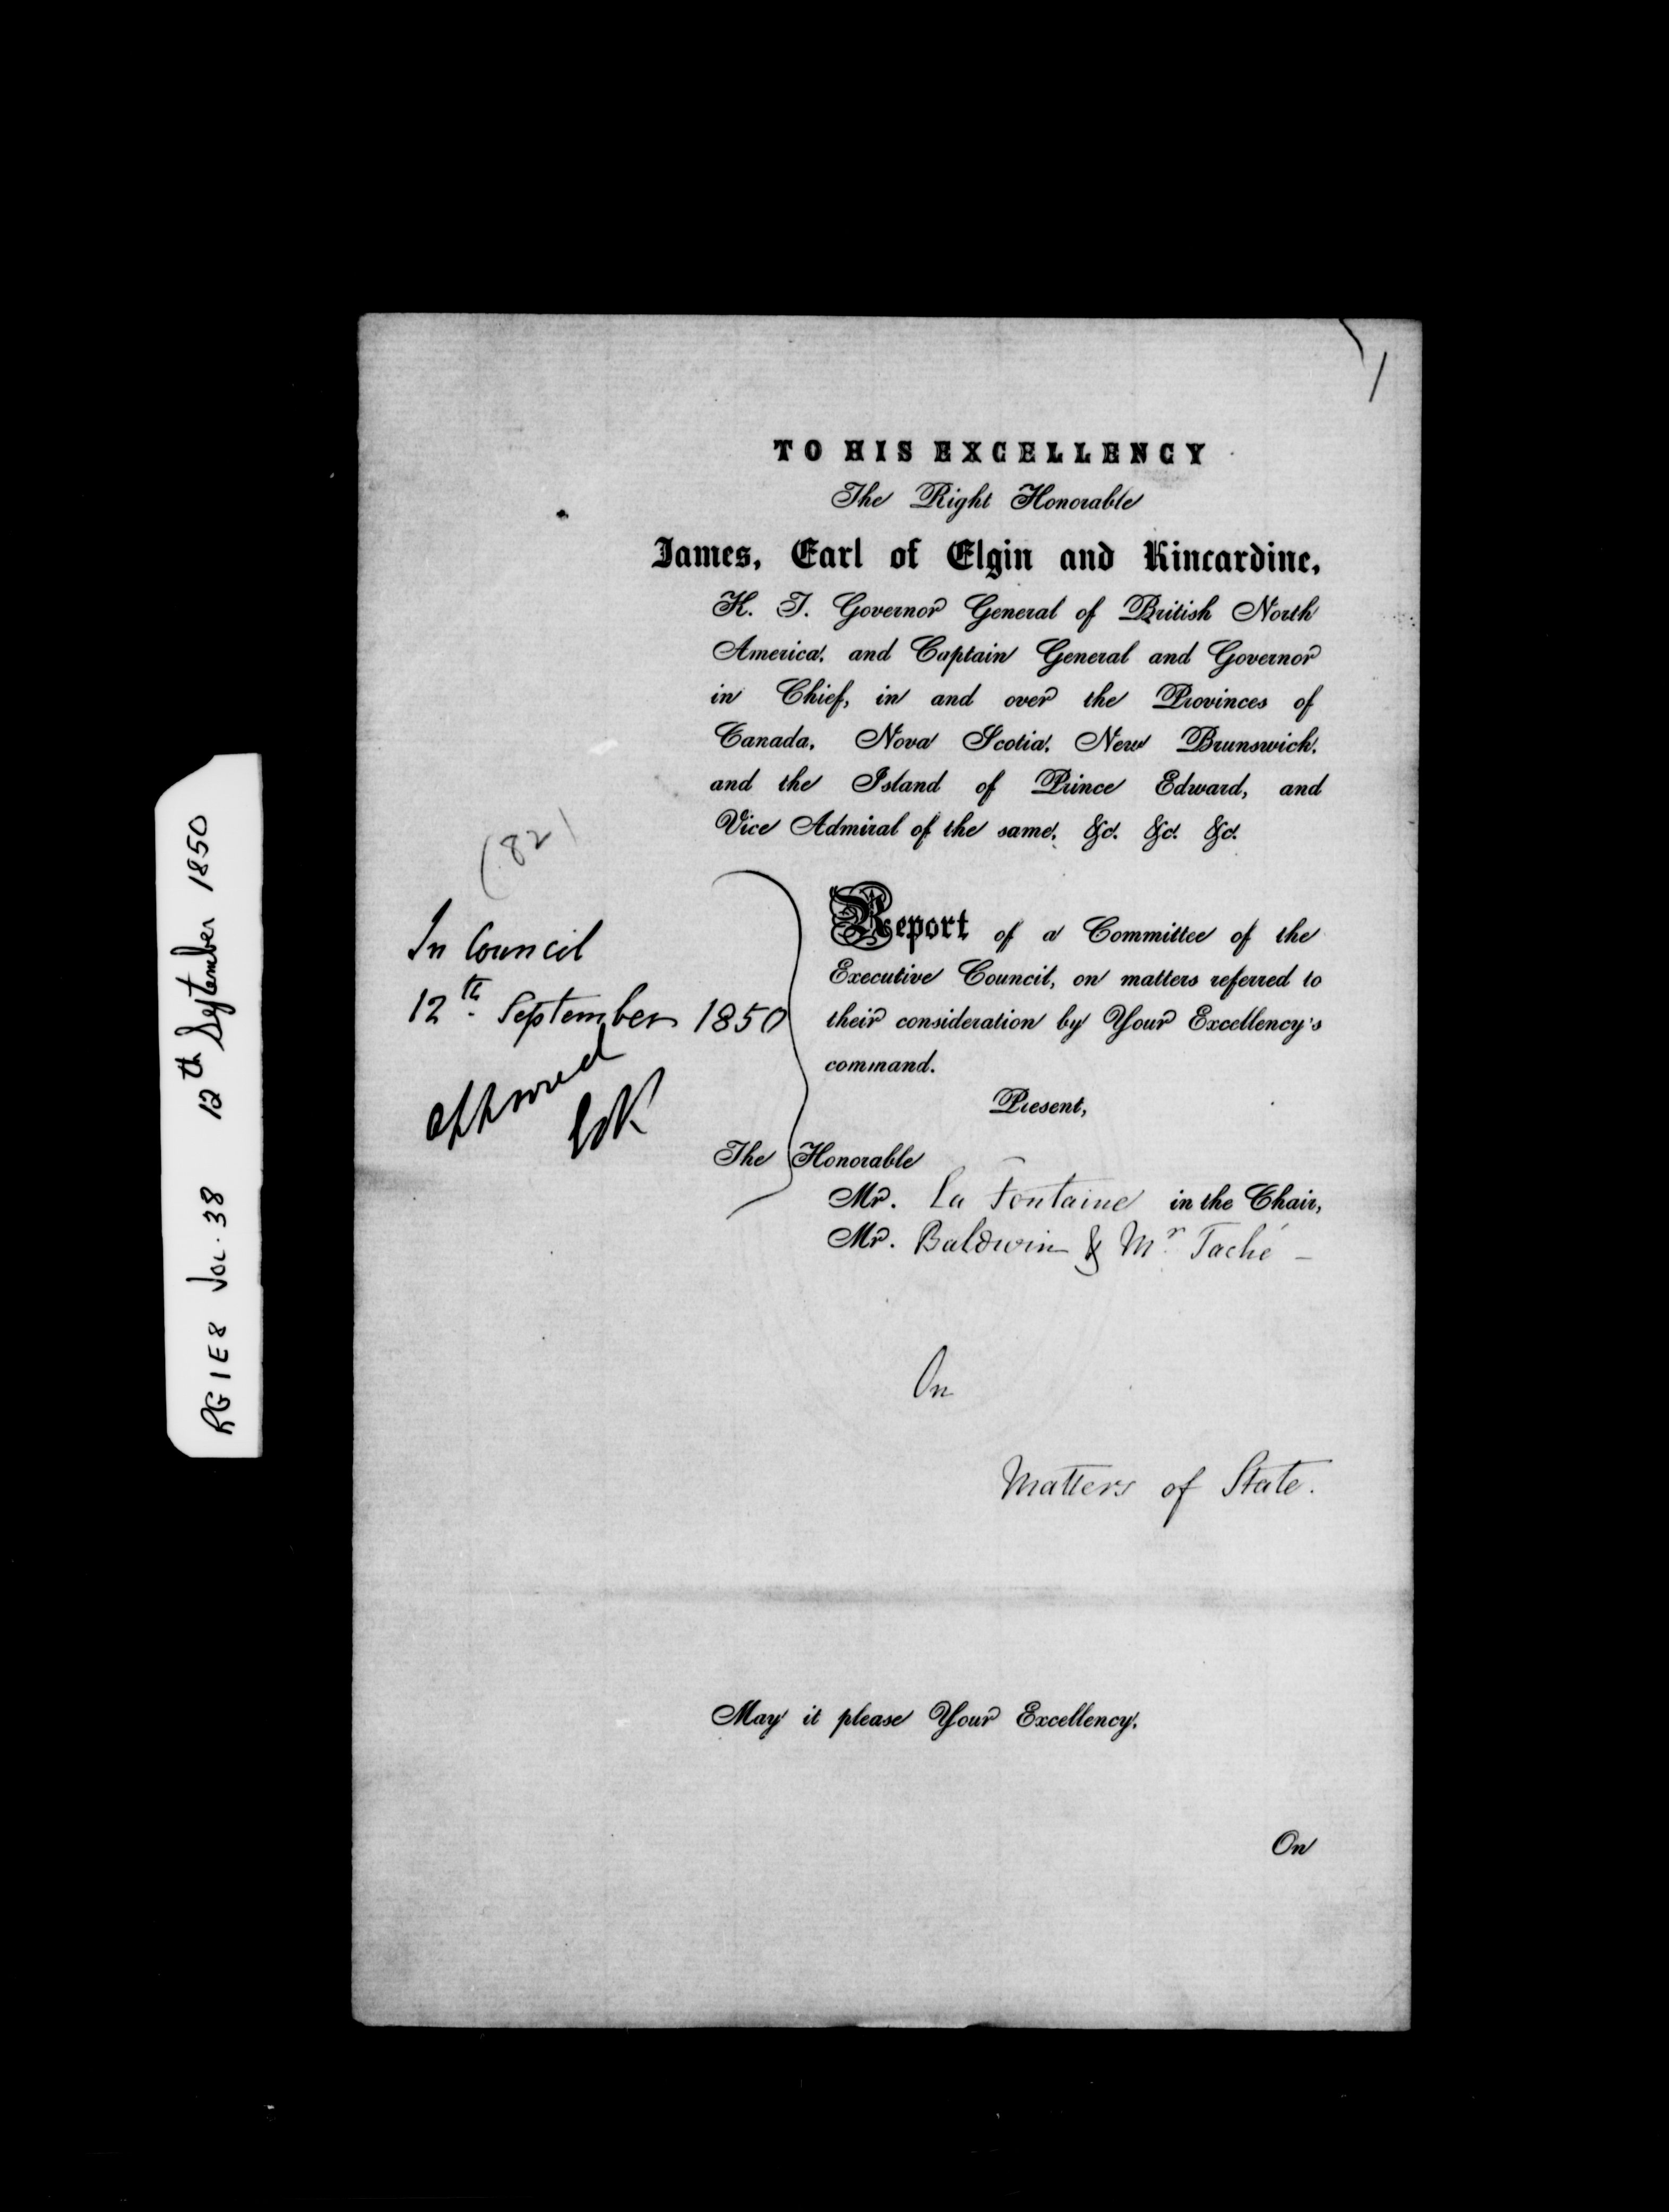 RG 1 E 8 Vol. 38 12th September 1850
/
TO HIS EXCELLENCY
The Right Honorable
James, Earl of Elgin and Kincardine,
K. T. Governor General of British North
America, and Captain General and Governor
in Chief, in and over the Provinces of
Canada, Nova Scotia, New Brunswick,
and the Island of Prince Edward, and
Vice Admiral of the same, &c. &c. &c.
(82)
In Council
12th. September 1850
Approved
E&K
Report of a Committee of the
Executive Council, on matters referred to
their consideration by Your Excellency's
command.
Present,
The Honorable
Mr. La Fontaine in the Chair,
Mr. Baldwin & Mr. Taché –
On
Matters of State.
May it please Your Excellency,
On